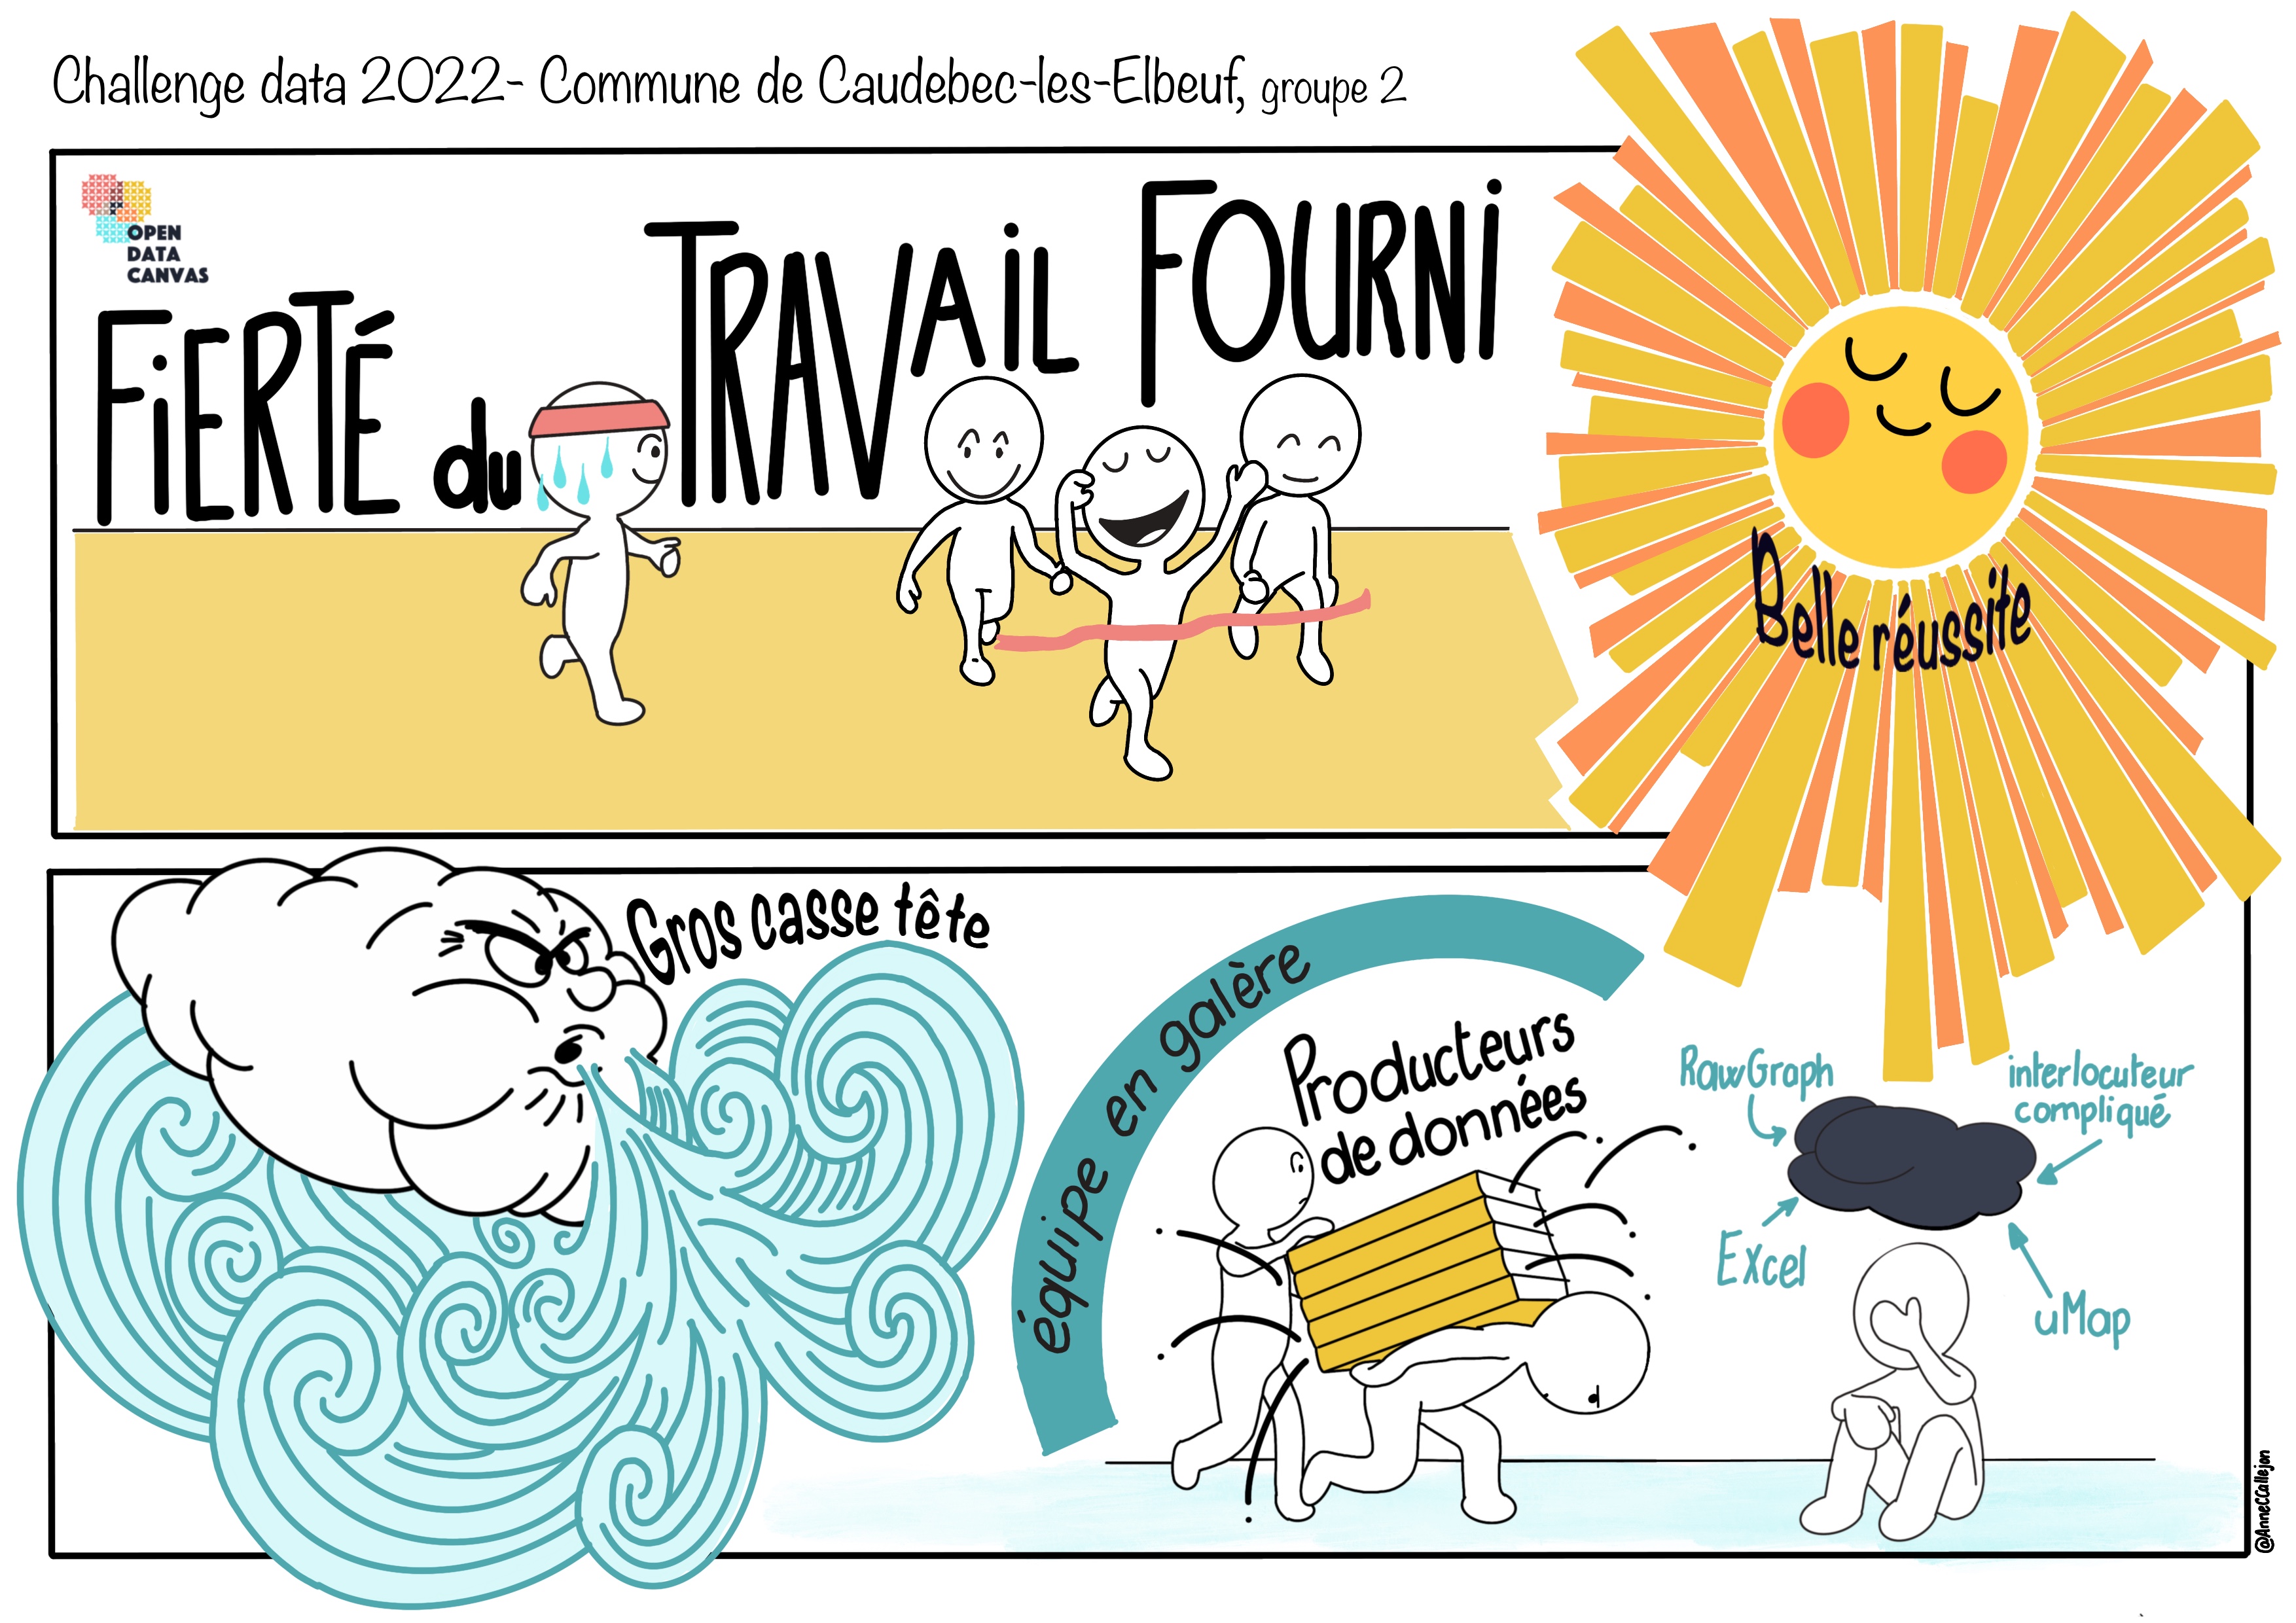 Challenge data 2022- Commune de Caudebec-les-Elbeuf, groupe 2
OPEN
DATA
CANVAS
FiERTÉ du TRAVAiL FOURNi
Belle réussite
Gros casse tête
équipe en galère
Producteurs
de données
RawGraph
interlocuteur
compliqué
Excel
uMap
@AnneCCallejon